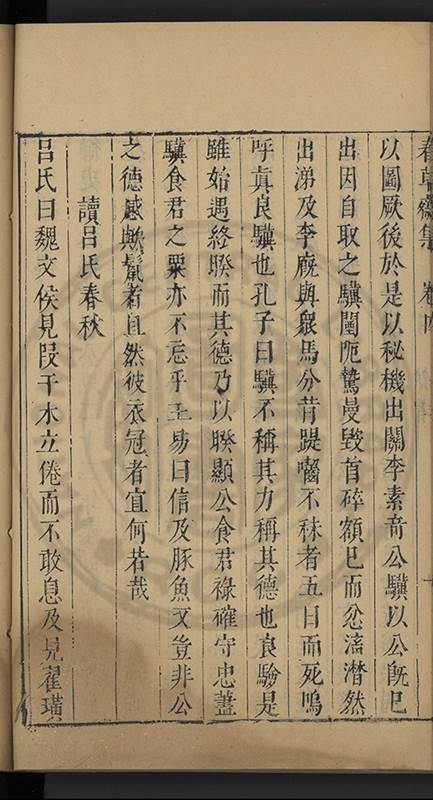 春草齋集 卷四
以圖厥後於是以秘機出關李素奇公驥以公既巳
出因自取之驥闉阨鷙曼毀首碎額巳而忿濤潸然
出涕及李廐與衆馬分昔踶囓不秣者五日而死嗚
呼真良驥也孔子曰驥不稱其力稱其德也良驗是
雖始遇終暌而其德乃以暌顯公食君祿確守忠藎
驥食君之粟亦不忘乎主易曰信及豚魚又豈非公
之德感歟鬣者且然彼衣冠者宜何若哉
讀呂氏春秋
呂氏曰魏文侯見段干木立倦而不敢息及見翟璜